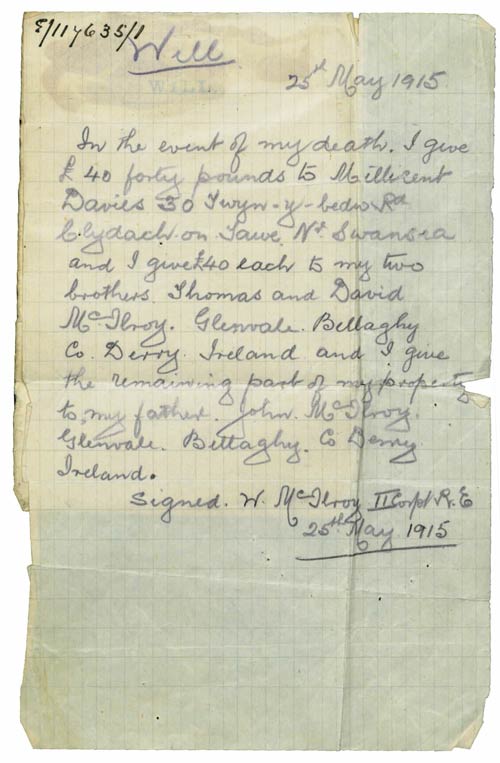 E/117635/1
Will
WILL
25th May 1915
In the event of my death. I give
£ 40 forty pounds to Millicent
Davies 30 Twyn-y-bedw Rd
Clydach-on Tawe Nr Swansea
and I give £40 each to my two
brothers. Thomas and David
McIlroy. Glenvale. Bellaghy
Co. Derry. Ireland and I give
the remaining part of my property
to my father. John. McIlroy.
Glenvale. Bellaghy. Co Derry
Ireland.
Signed. W. McIlroy II Corpl R.E
25th May 1915